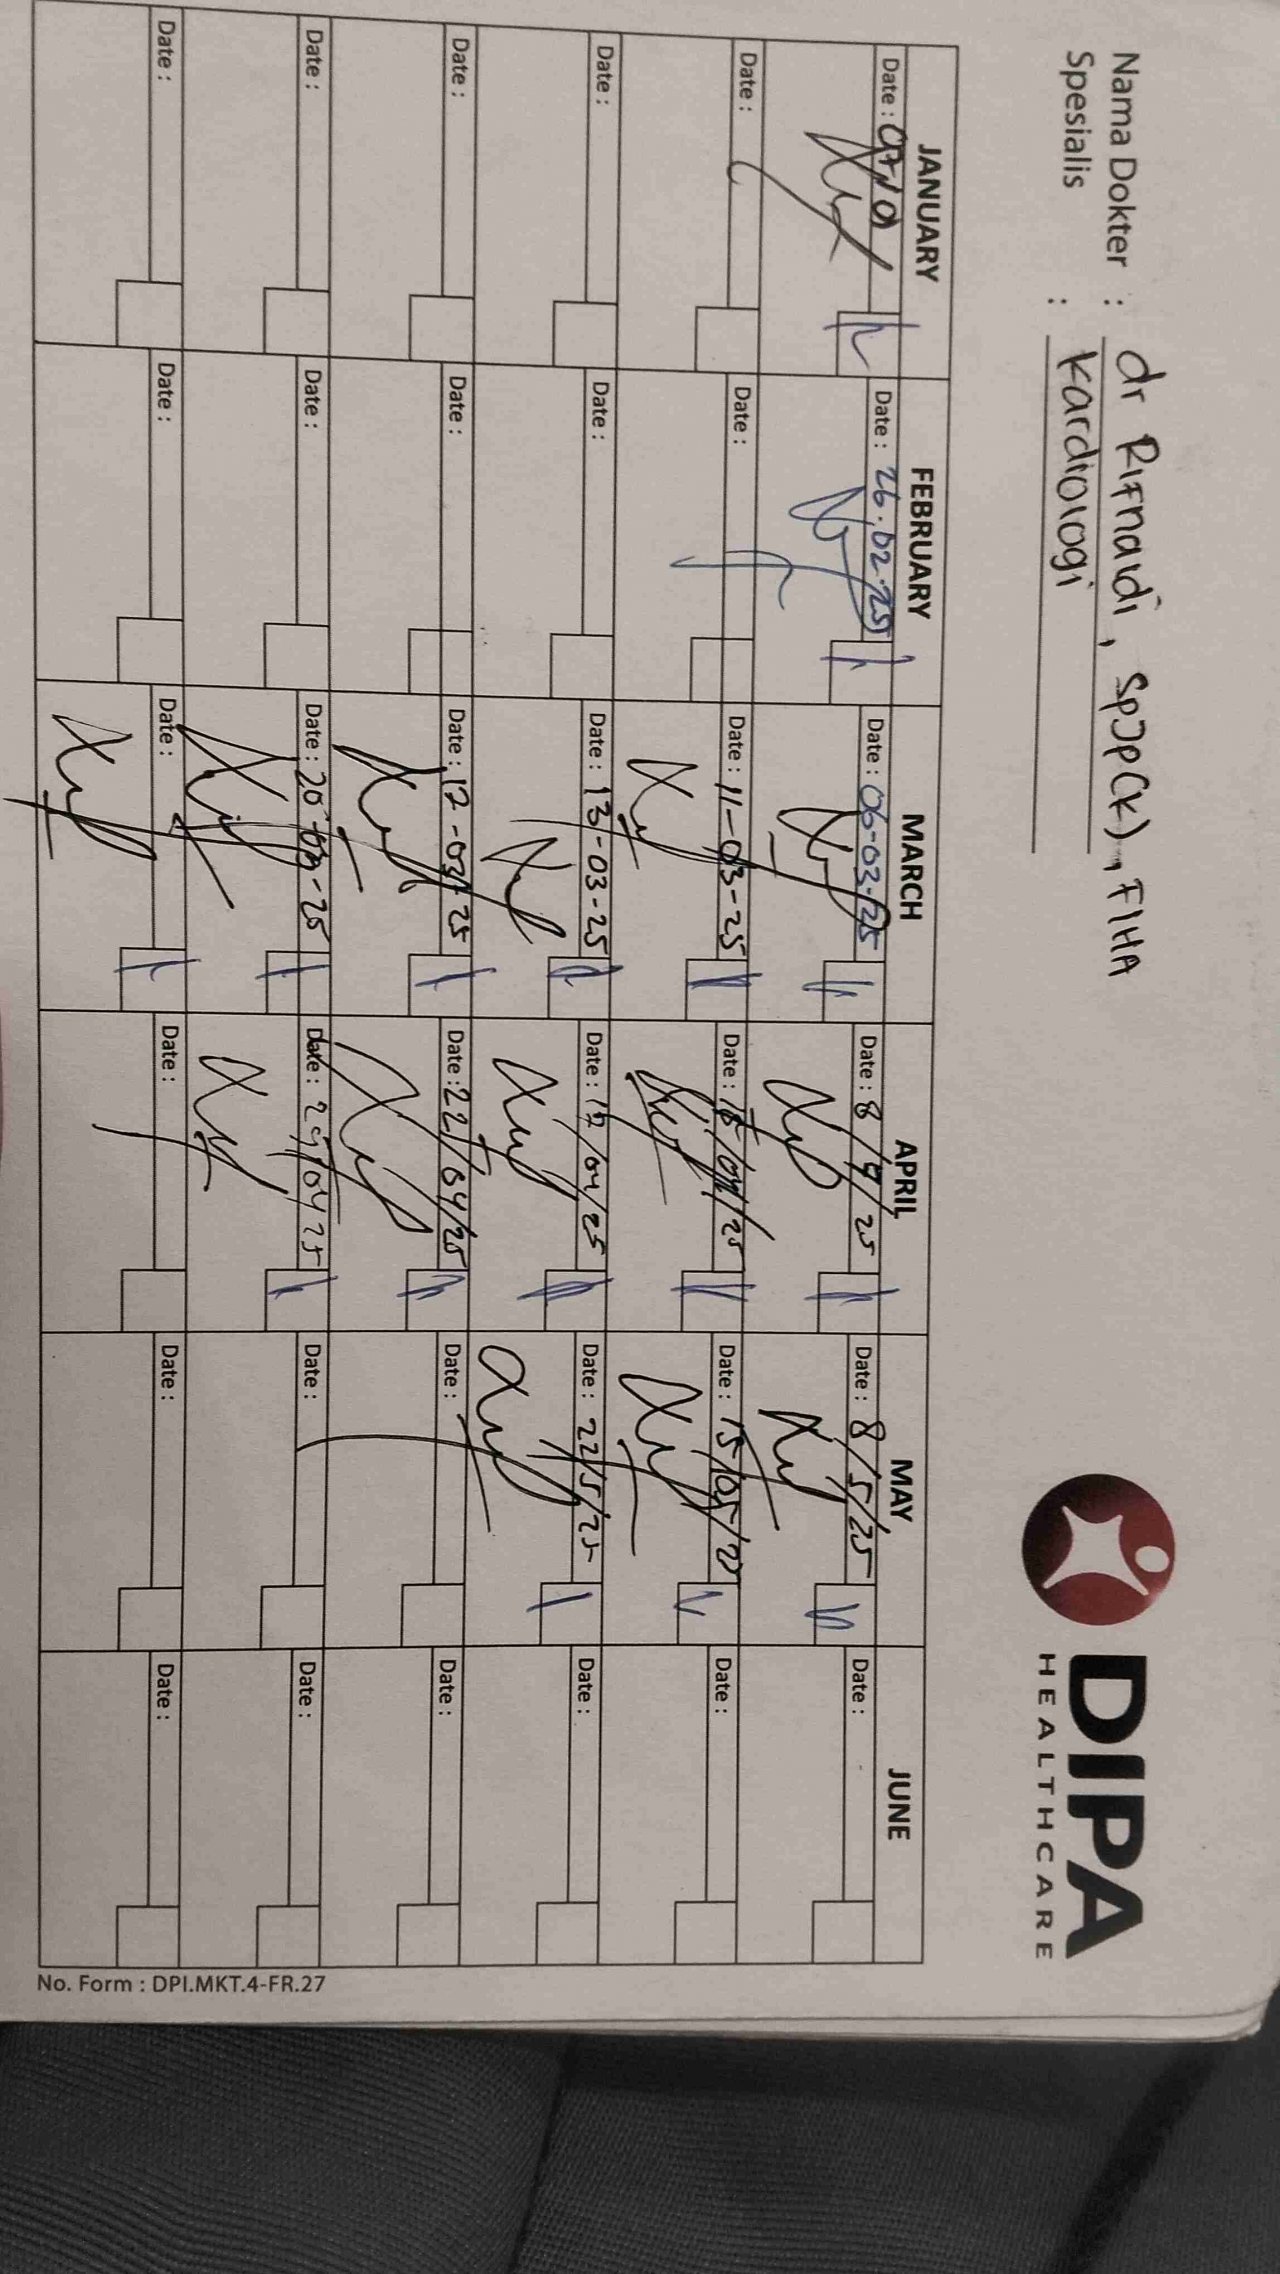 Nama Dokter : dr Rifnaldi, SpJP(K), FIHA
Spesialis : Kardiologi
DIPA
HEALTHCARE
JANUARY FEBRUARY MARCH APRIL MAY JUNE
Date : Date : 26.02.25 Date : 06-03-25 Date : 8/4/25 Date : 8/5/25 Date :
Date : Date : Date : 11-03-25 Date : 15/04/25 Date : 15/05/25 Date :
Date : Date : Date : 13-03-25 Date : 17/04/25 Date : 22/5/25 Date :
Date : Date : Date : 17-03-25 Date : 22/04/25 Date : Date :
Date : Date : Date : 20-03-25 Date : Date : Date :
Date : Date : Date : Date : Date : Date :
No. Form : DPI.MKT.4-FR.27